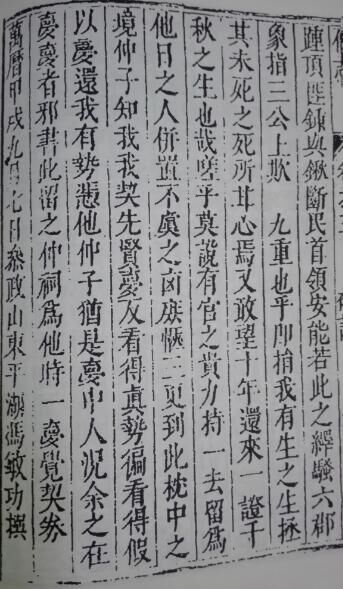 踵頂匪鋉與鍬斷民首領安能若此之繹騷六郡
象指三公上欺 九重也乎卽捐我有生之生拯
其未死之死所甘心焉又敢望十年還來一證千
秋之生也哉嗟乎莫說有官之貴力持一去留為
他日之人併置不虞之囟族愜三更到此枕中之
境仲子知我我契先賢憂友看得眞勢偏看得假
以憂還我有勢慿他仲子猶是憂中人況余之在
憂憂者邪書此留之仲祠為他時一憂覺契券
萬曆甲戌九月七日叅政山東平湖馮敏功撰